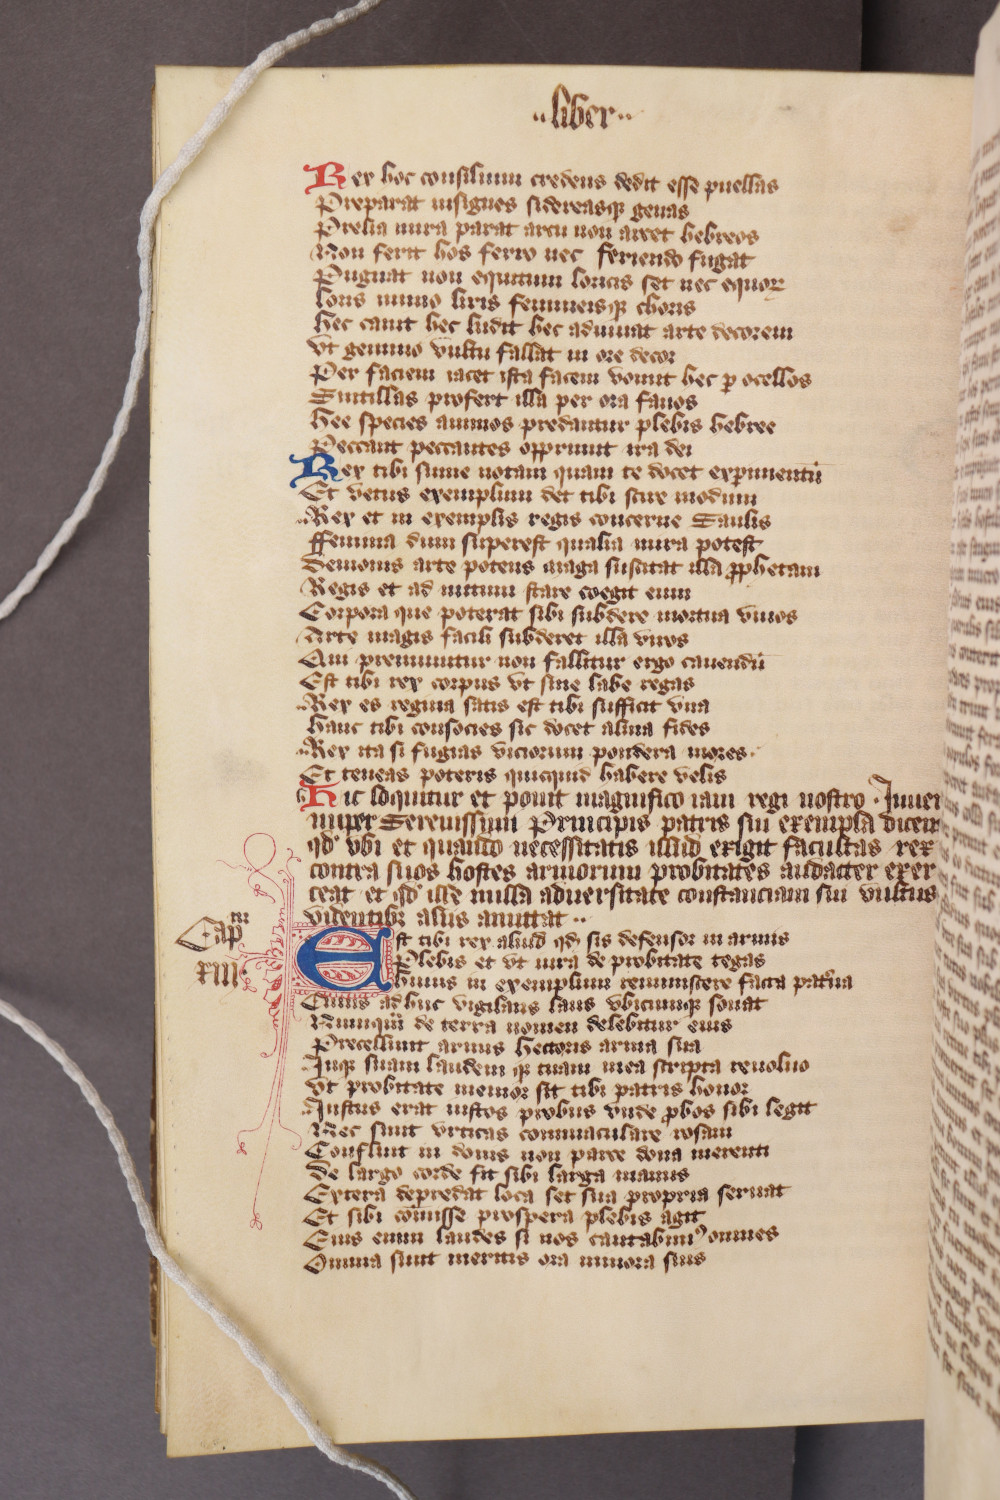 ··liber··
Rex hoc consilium credens dedit esse puellas
Preparat insignes sidereasqꝫ genas
Prelia mira parat arcu non artet hebreos
Non ferit hos ferro nec feriendo fugat
Pugnat non equitum loricis set nec equorꝝ
loris immo liris femineisqꝫ choris
hec canit hec ludit hec adiuuat arte decorem
vt gemino vultu fallat in ore decor
Per faciem iacet ista facem vomit hec ꝑ ocellos
Sintillas profert illa per ora fauos
hee species animos predantur plebis hebree
Peccant peccantes opprimit ira dei
Rex tibi sume notam quam te docet experimentū
Et vetus exemplum det tibi scire modum
Rex et in exemplis regis concerne Saulis
ffemina dum superest qualia mira potest
Demonis arte potens maga suscitat illa ꝓphetam
Regis et ad nutum stare coegit eum
Corpora que poterat sibi subdere mortua viuos
Arte magis facili subderet illa viros
Qui premunitur non fallitur ergo cauendū
Est tibi rex corpus vt sine labe regas
Rex es regina satis est tibi sufficit vna
hanc tibi consocies sic docet alma fides
Rex ita si fugias viciorum pondera mores·
Et teneas poteris quicquid habere velis
hic loquitur et ponit magnifico iam regi nostro · Iuueni
nuper Serenissimi Principis patris sui exempla dicens
qd' vbi et quando necessitatis illud exigit facultas rex
contra suos hostes armorum probitates audacter exer
ceat et qd' ille nulla aduersitate constanciam sui vultus
videntibꝫ aliis amittat ··
Capm
xiii·
Est tibi rex aliud qd' sis defensor in armis
Plebis et vt iura de probitate tegas
huius in exemplum reminiscere facta pat'na
Cuius adhuc vigilans laus vbicumqꝫ sonat
Numquā de terra nomen delebitur eius
Precellunt armis hectoris arma sua
Inqꝫ suam laudem qꝫ tuam mea scripta reuoluo
vt probitate memor sit tibi patris honor
Iustus erat iustos probus vnde ꝓbos sibi legit
Nec sinit vrticas commaculare rosam
Confluit in donis non parce dona merenti
de largo corde fit sibi larga manus
Extera depredat loca set sua propria seruat
Et sibi cōmisse prospera plebis agit
Eius enim laudes si nos cantabim⁹ omnes
Omnia sunt meritis ora minora suis